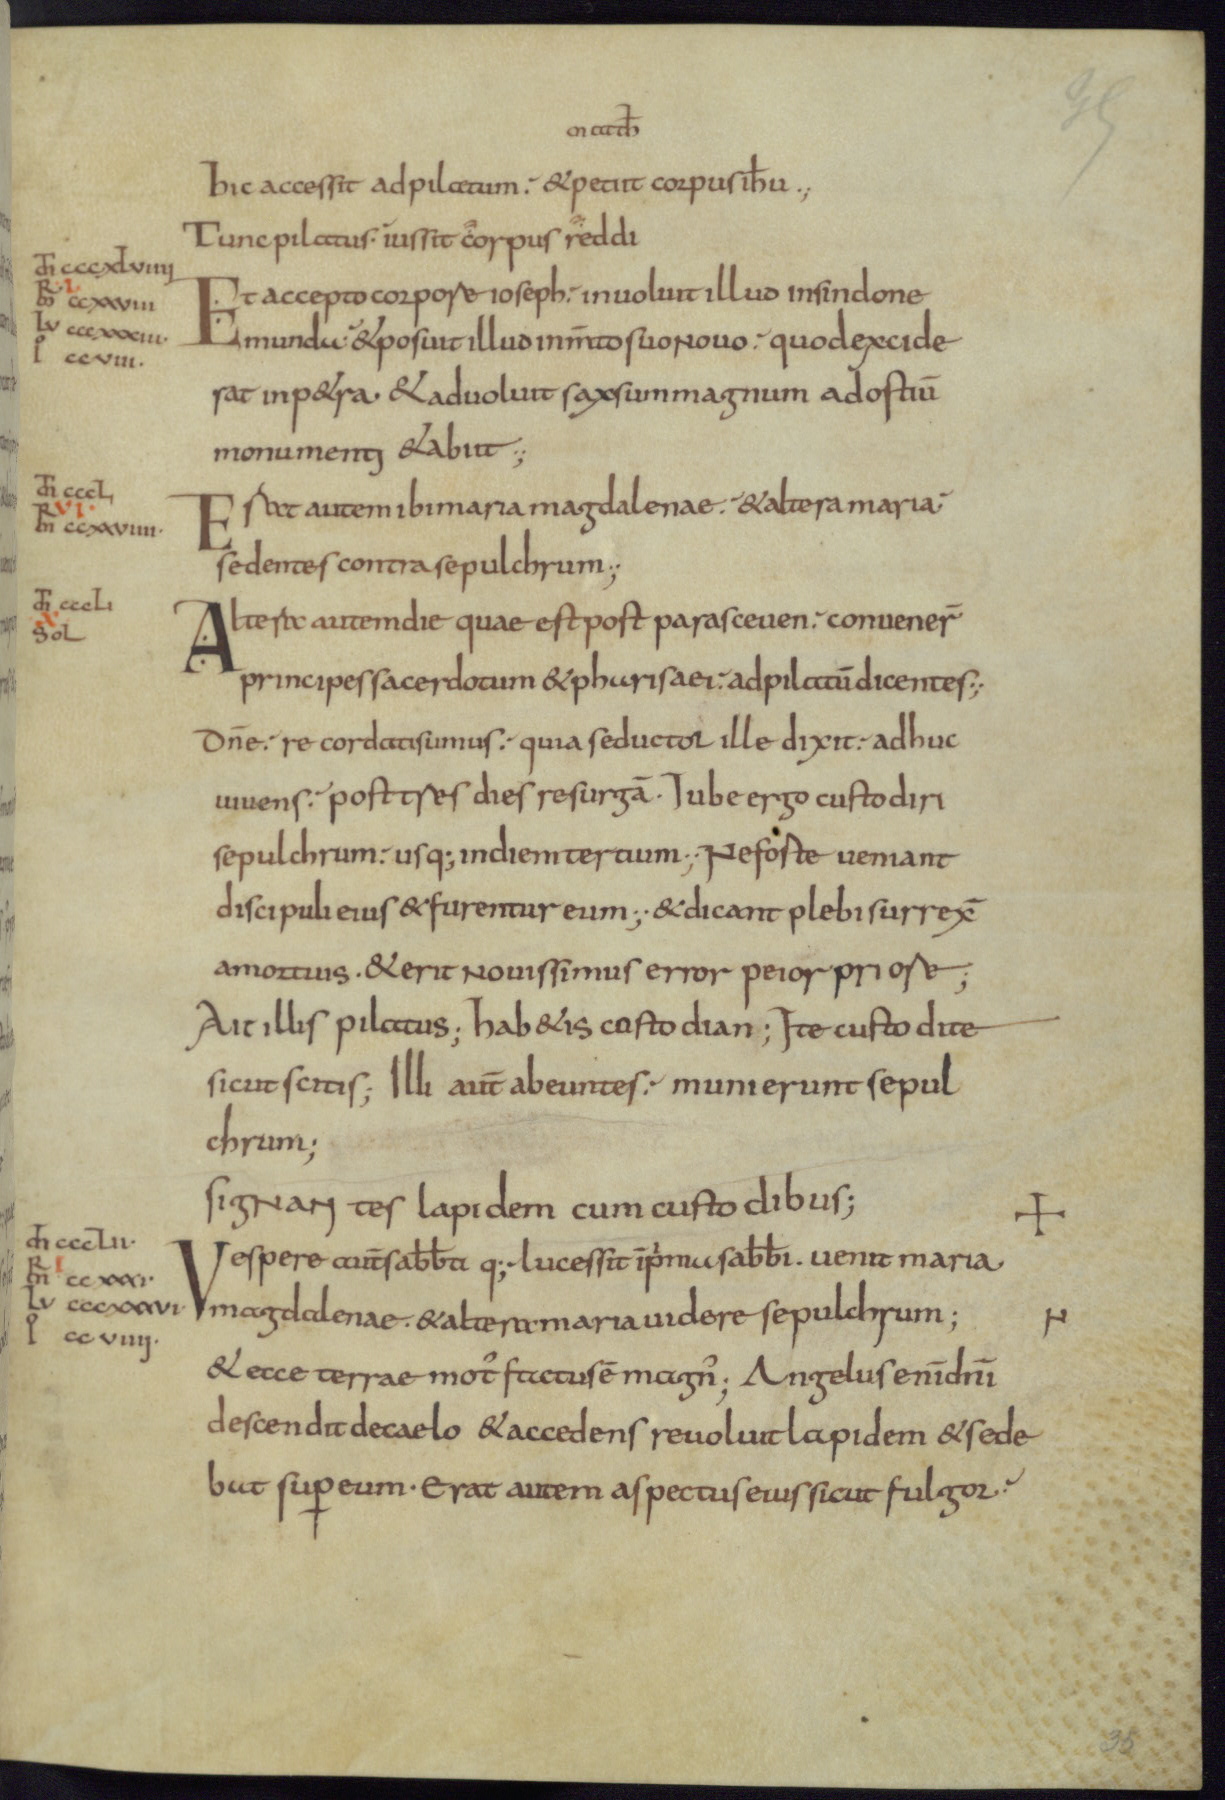 math̅
hic accessit ad pilatum. & petiit corpus ih̅u.;
Tunc pilatus. iussit corpus reddi
cccxlviiii
R I
ccxxviii
Lu cccxxxiii.
I ccviii.
Et accepto corpore ioseph. inuoluit illud insindone
munda. & posuit illud in m̅to suo nouo. quod excide
rat in p&ra. & aduoluit saxsum magnum ad ostiu̅
monumenti & abiit.;
cccL
R VI
ccxxviiii.
Erat autem ibi maria magdalenae. & altera maria
sedentes contra sepulchrum.;
cccLi
X
SoL
Altera autem die quae est post parasceuen. conuener̅
principes sacerdotum & pharisaei. ad pilatu̅ dicentes.;
Dn̅e. recordati sumus. quia seductor ille dixit. adhuc
uiuens. post tres dies resurga̅. Iube ergo custodiri
sepulchrum. usq; in diem tertium.; Ne forte ueniant
discipuli eius & furentur eum.; & dicant plebi surrex̅
amortuis. & erit nouissimus error peior priore;
Ait illis pilatus; hab&is custodian; Ite custodite
sicut scitis; Illi aut̅ abeuntes. munierunt sepul
chrum;
signantes lapidem cum custodibus;
cccLii.
R I
ccxxxi.
Lu cccxxxvi
I ccviiii.
Vespere aut̅ sabb̅ti q; lucessit in prima sabb̅i. uenit maria
magdalenae. & altera maria uidere sepulchrum;
N
& ecce terrae mot᾿ factus e̅ magn᾿; Angelus eni̅ dn̅i
descendit de caelo & accedens reuoluit lapidem & sede
bat sup̱ eum. Erat autem aspectus eius sicut fulgor.
35